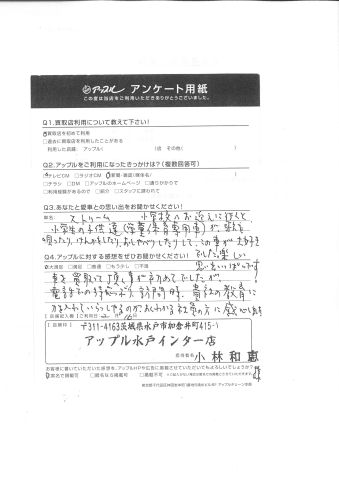 アップル アンケート用紙
この度は当店をご利用いただきありがとうございました。
Q1.買取店利用について教えて下さい!
買取店を初めて利用
過去に買取店を利用したことがある
利用した店舗 アップル( 店 その他( )
Q2.アップルをご利用になったきっかけは?(複数回答可)
テレビCM ラジオCM 新聞・雑誌(媒体名: )
チラシ DM アップルのホームページ 通りがかりで
利用経験があるので 紹介 スタッフに誘われて
Q3.あなたと愛車との思い出をお聞かせください!
車名: ストリーム 小学校へお迎えに行くと
小学生の子供達(学童保育専用車)が、歌を
唄ったり、けんかをしたり、おしゃべりしたりして、この車が大好き
でした。楽しい
思い出いっぱいです!
Q4.アップルに対する感想をぜひお聞かせください!
大満足 満足 普通 もう少し 不満
車を買取して頂く事が初めてでしたが、
電話での対応
訪問時、貴社の教育に
力を入れていらっしゃるのがよくわかる社員の方に感心しました
【店舗記入欄】ご利用日
【店舗枠】
〒311-4163茨城県水戸市加倉井町415-1
アップル水戸インター店
担当者名 小林和恵
お客様に書いていただいた感想を、アップルHPや広告に掲載させていただいてもよろしいでしょうか?
実名で掲載可 匿名なら掲載可 掲載不可